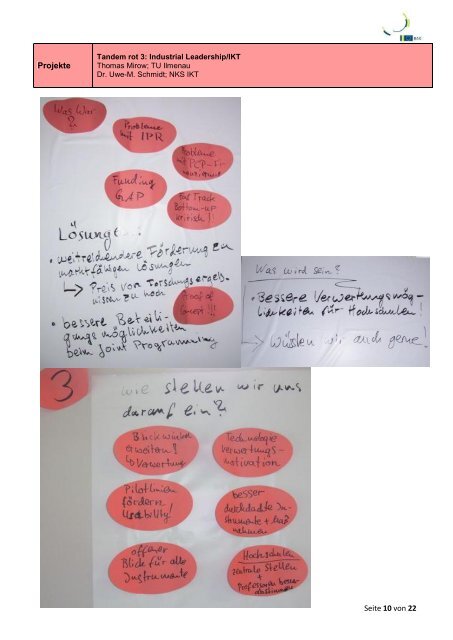 Projekte
Tandem rot 3: Industrial Leadership/IKT
Thomas Mirow; TU Ilmenau
Dr. Uwe-M. Schmidt; NKS IKT
Was war
?
Probleme
mit IPR
Probleme
mit PCP-Fi-
Funding
GAP
Fast Track
Bottom-up
kritisch!!
Lösungen:
• weitreichendere Förderung zu
marktfähigen Lösungen
↳ Preis von Forschungsergeb-
nissen zu hoch
Proof of
Concept!!!
• bessere Beteili-
gungsmöglichkeiten
beim Joint Programming
Was wird sein?
• Bessere Verwertungsmög-
lichkeiten für Hochschulen!
→ Wüssten wir auch gerne!
3
Wie stellen wir uns
darauf ein?
Blickwinkel
erweitern!
↳ Verwertung
Technologie
verwertungs-
motivation
Pilotlinien
fördern
Usability!
besser
durchdachte In-
strumente + Maß
nahmen
offener
Blick für alle
Instrumente
Hochschulen
zentrale Stellen
+
Professoren besser
abstimmen
Seite 10 von 22